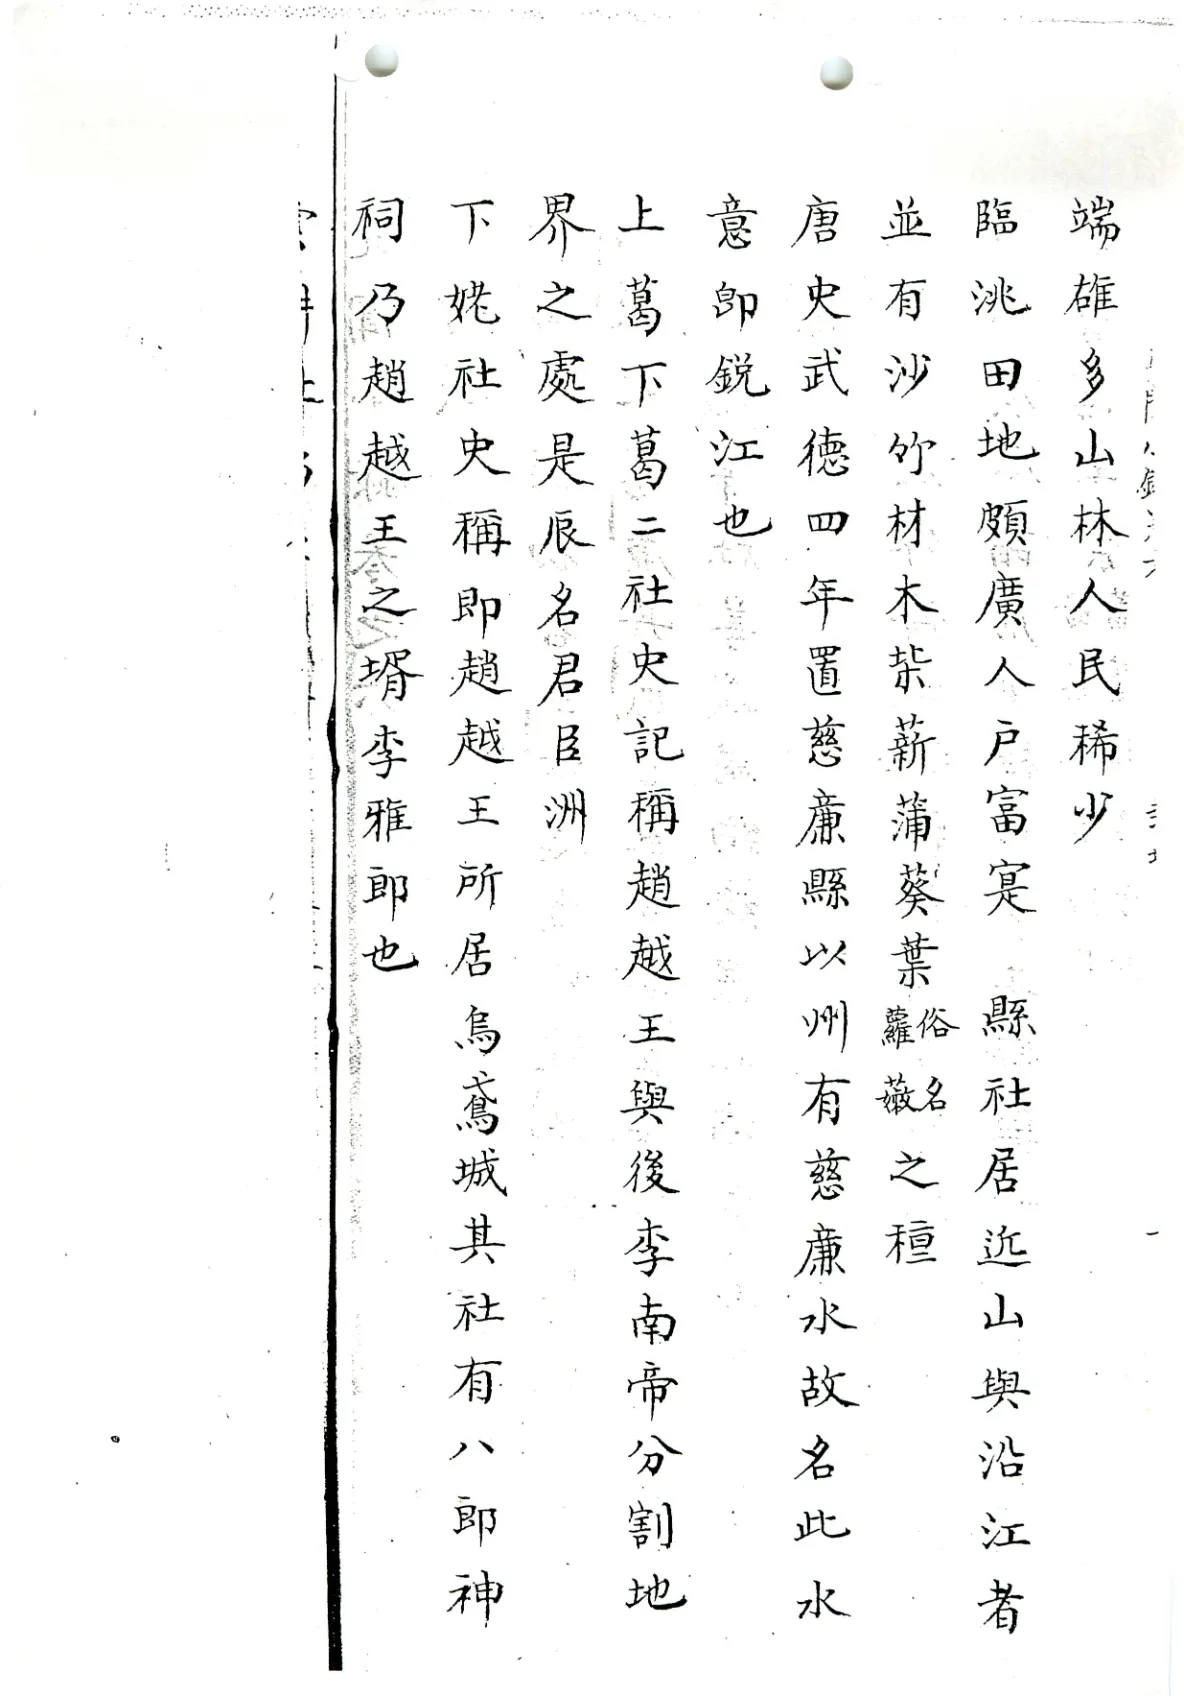 端雄多山林人人民稀少
臨洮田地頗廣人戶富寔　縣社居近山與沿江者
並有沙竹材木柴薪蒲葵葉俗名蘿䕷之種
唐史武德四年置慈廉縣以州有慈廉水故名此水
意卽銳江也
上葛下葛二社史記稱趙越王與後李南帝分割地
界之處是辰名君臣洲
下姥社史稱即趙越王所居烏鳶城其社有八郎神
祠乃趙越王之壻李雅郎也